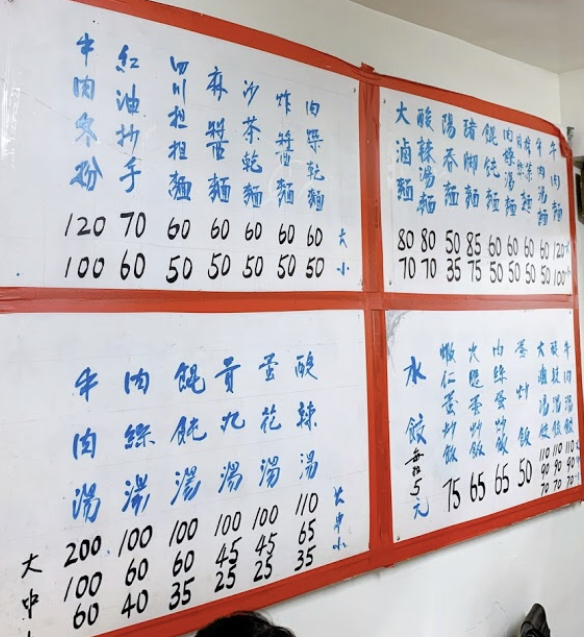 牛肉麵 120 100
牛肉湯麵 60 50
60 50
肉絲湯麵 60 50
餛飩麵 60 50
豬腳麵 85 75
陽春麵 50 35
酸辣湯麵 80 70
大滷麵 80 70
大 小
肉燥乾麵 60 50
炸醬麵 60 50
沙茶乾麵 60 50
麻醬麵 60 50
四川担担麵 60 50
紅油抄手 70 60
牛肉冬粉 120 100
牛肉湯餃 110 90 70
酸辣湯餃 110 90 70
大滷湯餃 110 90 70
蛋炒飯 50
肉絲蛋炒飯 65
火腿蛋炒飯 65
蝦仁蛋炒飯 75
水餃每粒5元
大中小
酸辣湯 110 65 35
蛋花湯 100 45 25
貢丸湯 100 45 25
餛飩湯 100 60 35
肉絲湯 100 60 40
牛肉湯 200 100 60
大中